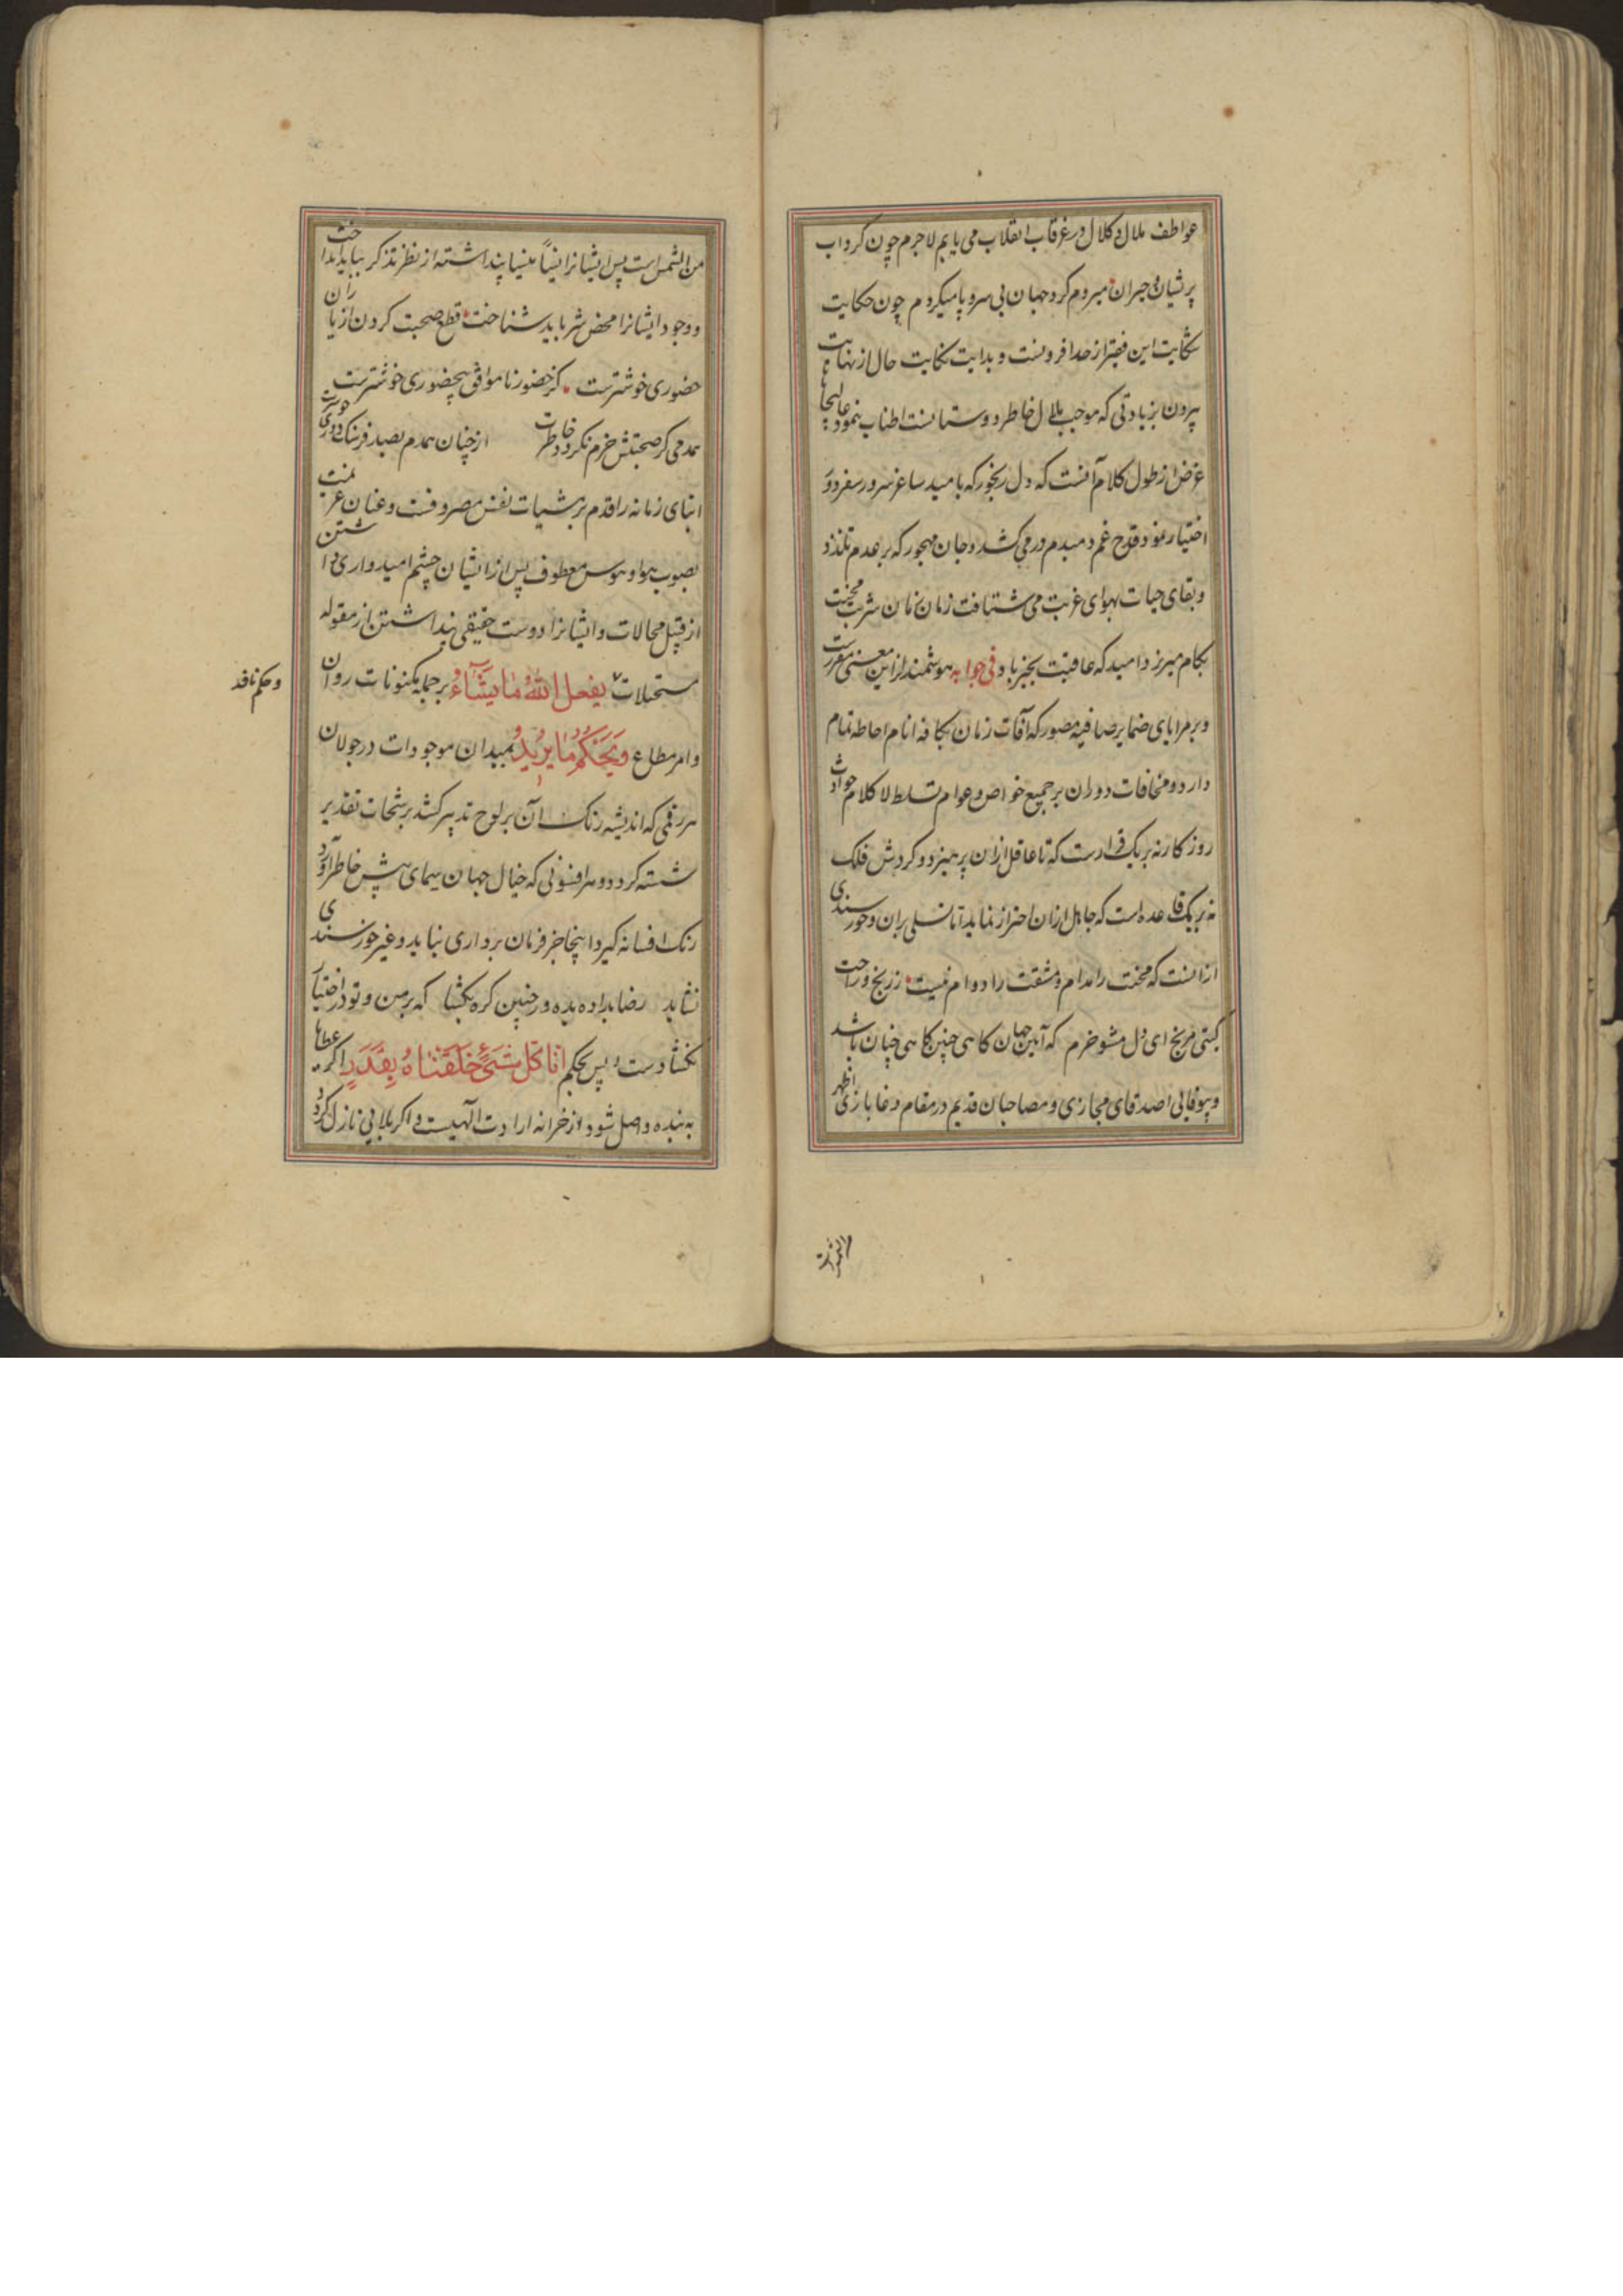 عواطف ملال و کلال در غرقاب انقلاب می یابم لاجرم چون کرداب
پریشان و حیران میردم کرد جهان بی سر و پا میکردم چون حکایت
شکایت این فقیر از حد افزونست و بدایت نکایت حال از نهایت
بیرون بزیادتی که موجب ملال خاطر دوستانست اطناب ننمود
غرض از طول کلام آنست که دل رنجور که بامید ساغر سرور سفر دور
اختیار نمود قدح غم دمبدم در می کشد و جان مهجور که بر عدم تلذذ
و بقای حیات بهوای غربت می شتافت زمان زمان شربت محنت
بکام میریزد امید که عاقبت بخیر باد فی جوابه هوشمند از این معنی مقررست
و بر مرایای ضمایر صافیه مصور که آفات زمان بکافه انام احاطه تمام
دارد و مخافات دوران بر جمیع خواص و عوام تسلط لا کلام حوادث
روزکار نه بر یک قرارست که تا عاقل ازان پرهیزد و کردش فلک
نه بر یک قاعده است که جاهل ازان احتراز نماید اما تسلی بران و خورسندی
ازانست که محنت را مدام و مشقت را دوام نیست ز رنج و راحت
کیتی مرنج ای دل مشو خرم که آیین جهان کاهی چنین کاهی چنان باشد
و بیوفایی اصدقای مجازی و مصاحبان قدیم در مقام دغا بازی اظهر
من الشمس است پس ایشانرا نسیاً منسیا پنداشته از نظر تذکر بباید انداخت
و وجود ایشانرا محض شر باید شناخت قطع صحبت کردن از یاران
حضوری خوشترست کز حضور ناموافق بیحضوری خوشترست
همدمی کز صحبتش خرم نکردد خاطرت از چنان همدم بصد فرسنک دوری خوشترست
ابنای زمانه را قدم بر مشتهیات نفس مصروفست و عنان عزیمت
بصوب هوا و هوس معطوف پس از ایشان چشم امیدواری داشتن
از قبیل محالات و ایشانرا دوست حقیقی پنداشتن از مقوله
مستحیلات یفعل الله ما یشاء بر جمله مکنونات روان
و حکم نافذ
و امر مطاع ویحکم ما یرید بمیدان موجودات در جولان
هر رقمی که اندیشه رنک آن بر لوح تدبیر کشد برشحات تقدیر
شسته کردد و هر افسونی که خیال جهان پیمای پیش خاطر آورد
رنک افسانه کیرد اینجا جز فرمان برداری نباید و غیر خورسندی
نشاید رضا بداده بده وز جبین کره بکشا که بر من و تو در اختیار
نکشادست پس بحکم انا کل شیء خلقناه بقدر اکر عطا
به بنده واصل شود از خزانه ارادت الهیست و اکر بلایی نازل کردد